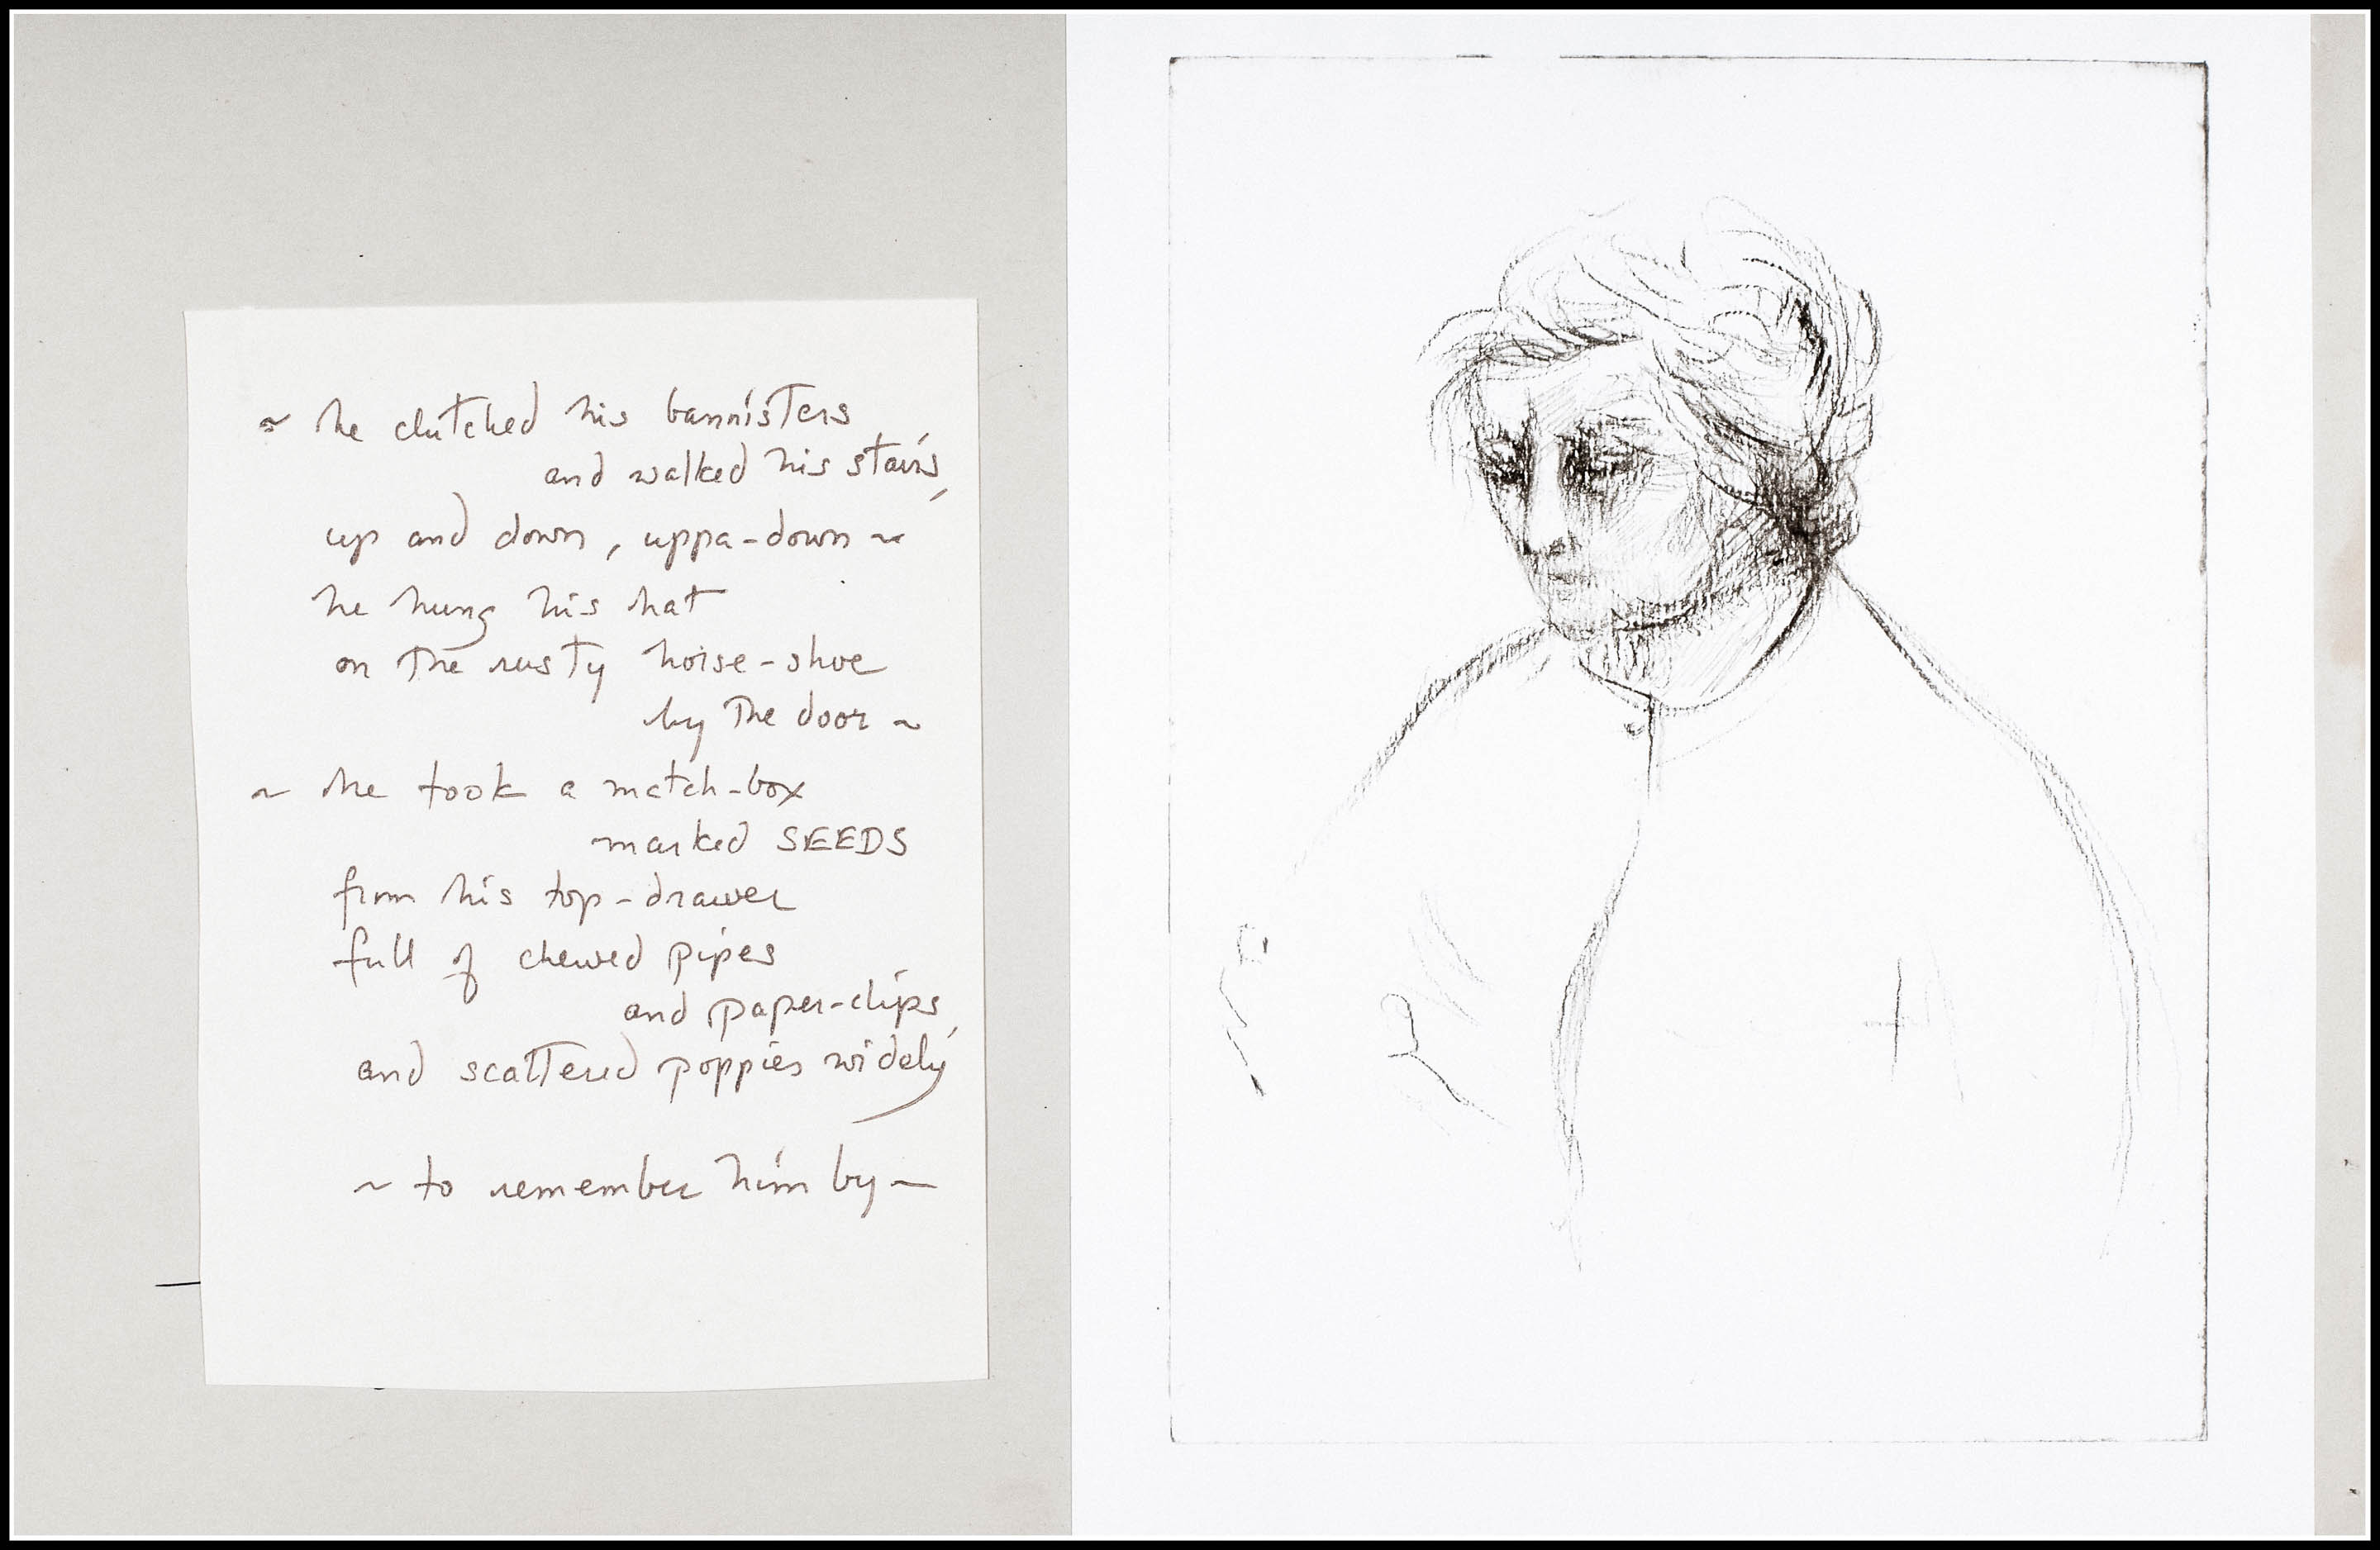 ~ he clutched his bannisters
and walked his stairs,
up and down, uppa-down ~
he hung his hat
on the rusty horse-shoe
by the door ~
~ he took a match-box
marked SEEDS
from his top-drawer
full of chewed pipes
and paper-clips,
and scattered poppies widely
~ to remember him by ~